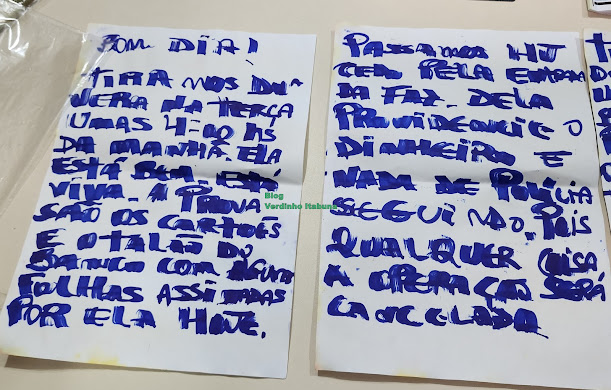 BOM DIA!
TIRA MOS DU
VERA NA TERÇA
UMAS 4=00 hs
DA MANHÃ. ELA
ESTÁ BEM, ESTÁ
VIVA. A PROVA
SÃO OS CARTÕES
E O TALÃO DO
BANCO COM ALGUMAS
FOLHAS ASSINADAS
POR ELA HOJE.
Blog
Verdinho Itabuna
PASSAMOS HJ
CEDO PELA ENTRADA
DA FAZ. DELA
PROVIDENCIE O
DINHEIRO E
NADA DE POLÍCIA
SEGUI NDO. POIS
QUALQUER COISA
A OPERAÇÃO SERÁ
CANCELADA